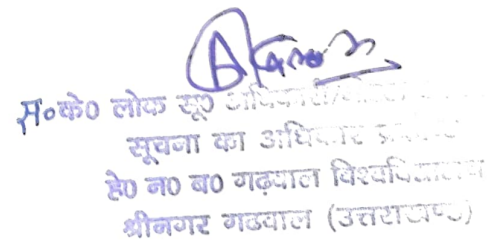 स०के० लोक सू० अधिकारी
सूचना का अधिकार
हे० न० ब० गढ़वाल विश्वविद्यालय
श्रीनगर गढवाल (उत्तराखण्ड)